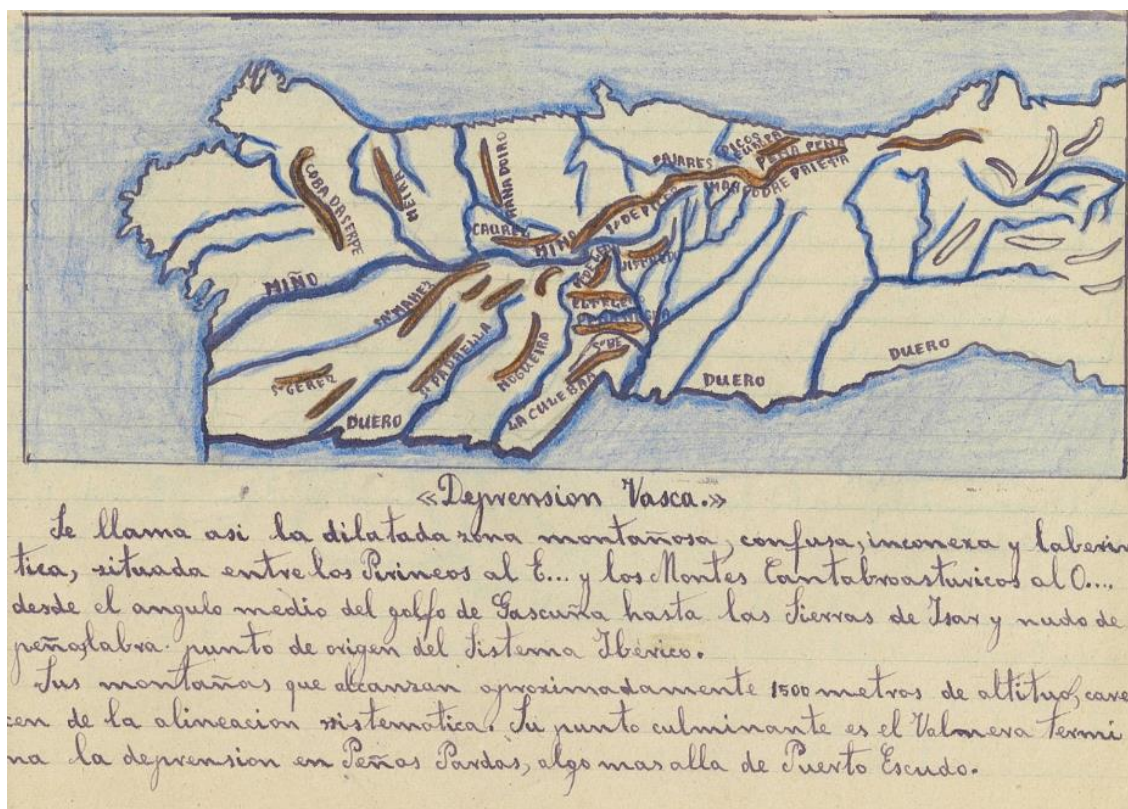 COBA DA SERPE
MEIRA
MAÑADOIRO
CAUREL
MIÑO
MIÑO
PAJARES
PICOS
EUROPA
PEÑA PEÑA
PRIETA
Sª MAMEZ
Sª GEREZ
Sª PADRELLA
NOGUEIRA
LA CULEBRA
DUERO
DUERO
DUERO
«Deprension Vasca.»
Se llama asi la dilatada zona montañosa, confusa, inconexa y laberin
tica, situada entre los Pirineos al E... y los Montes Cantabroasturicos al O....
desde el angulo medio del golfo de Gascuña hasta las Sierras de Isar y nudo de
peñalabra punto de origen del Sistema Ibérico.
Sus montañas que alcanzan aproximadamente 1500 metros de altitud, care
cen de la alineacion sistematica. Su punto culminante es el Valnera termi
na la deprension en Peñas Pardas, algo mas alla de Puerto Escudo.